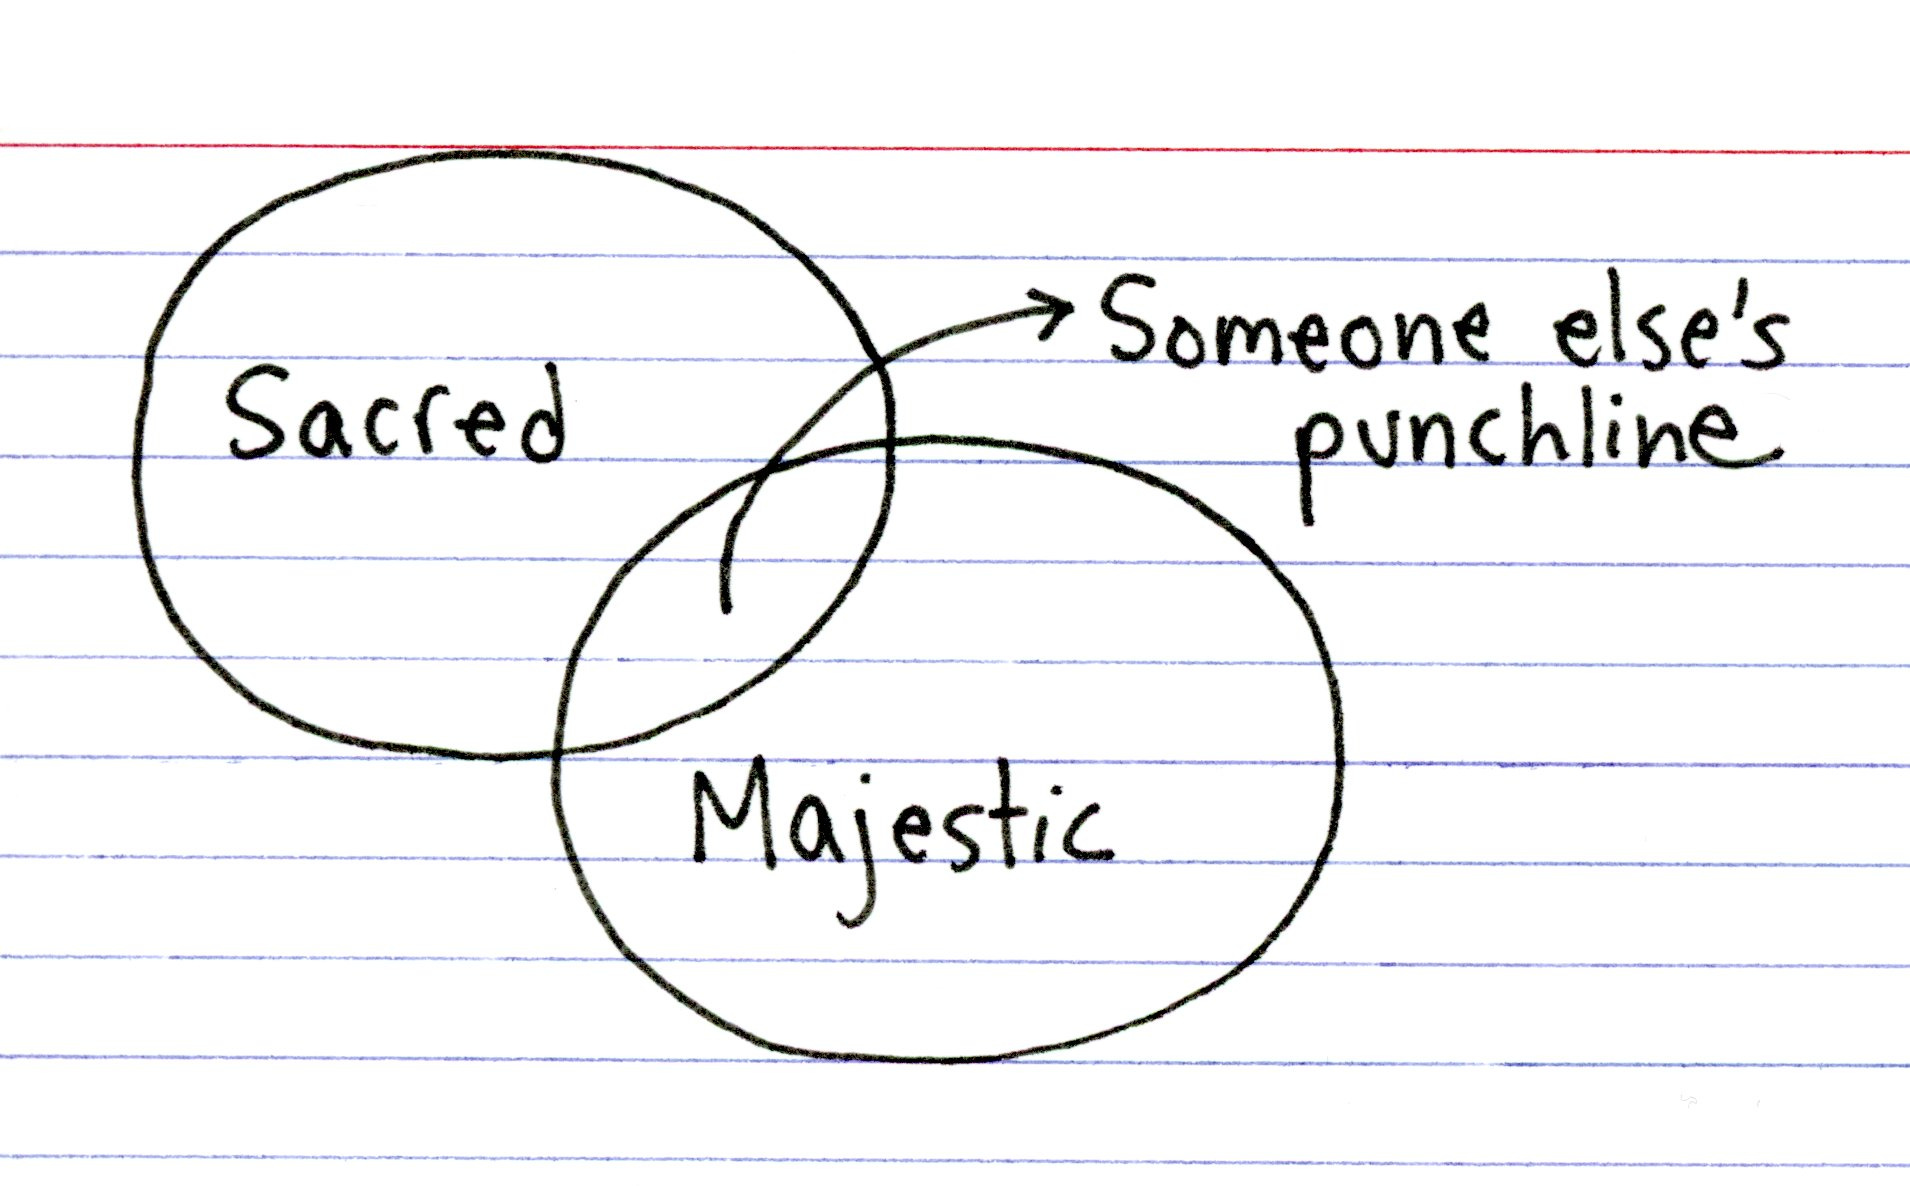 Sacred
Someone else's
punchline
Majestic